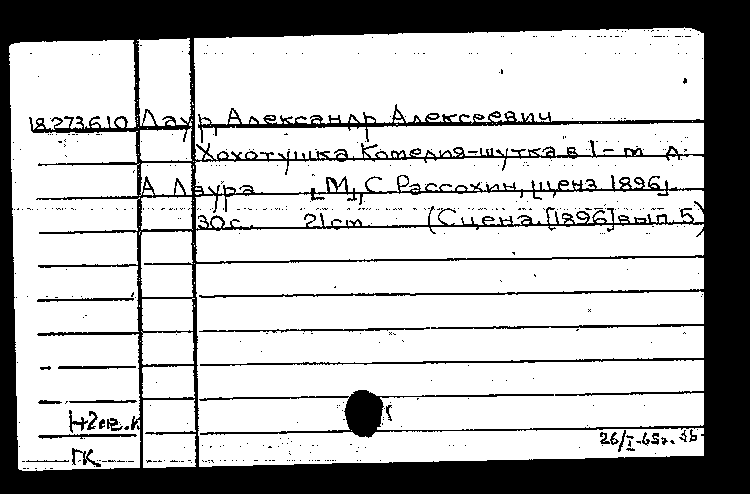 18.273.610 Лаур, Александр Алексеевич
Хохотушка. Комедия-шутка в 1-m д.
А. Лаура [М], С. Рассохин, [ценз. 1896].
30 с. 21 cm. (Сцена. [1896] вып. 5)
1+2 экз. к.
26/I-65г.
ГК